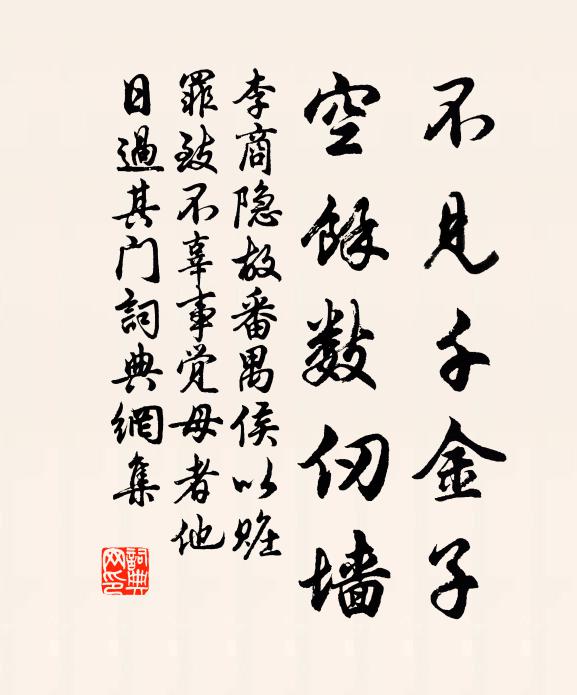 不见千金子
空馀数仞墙
李商隐故番禺侯以赃
罪致不辜事觉母者他
日过其门词典网集
词典网印